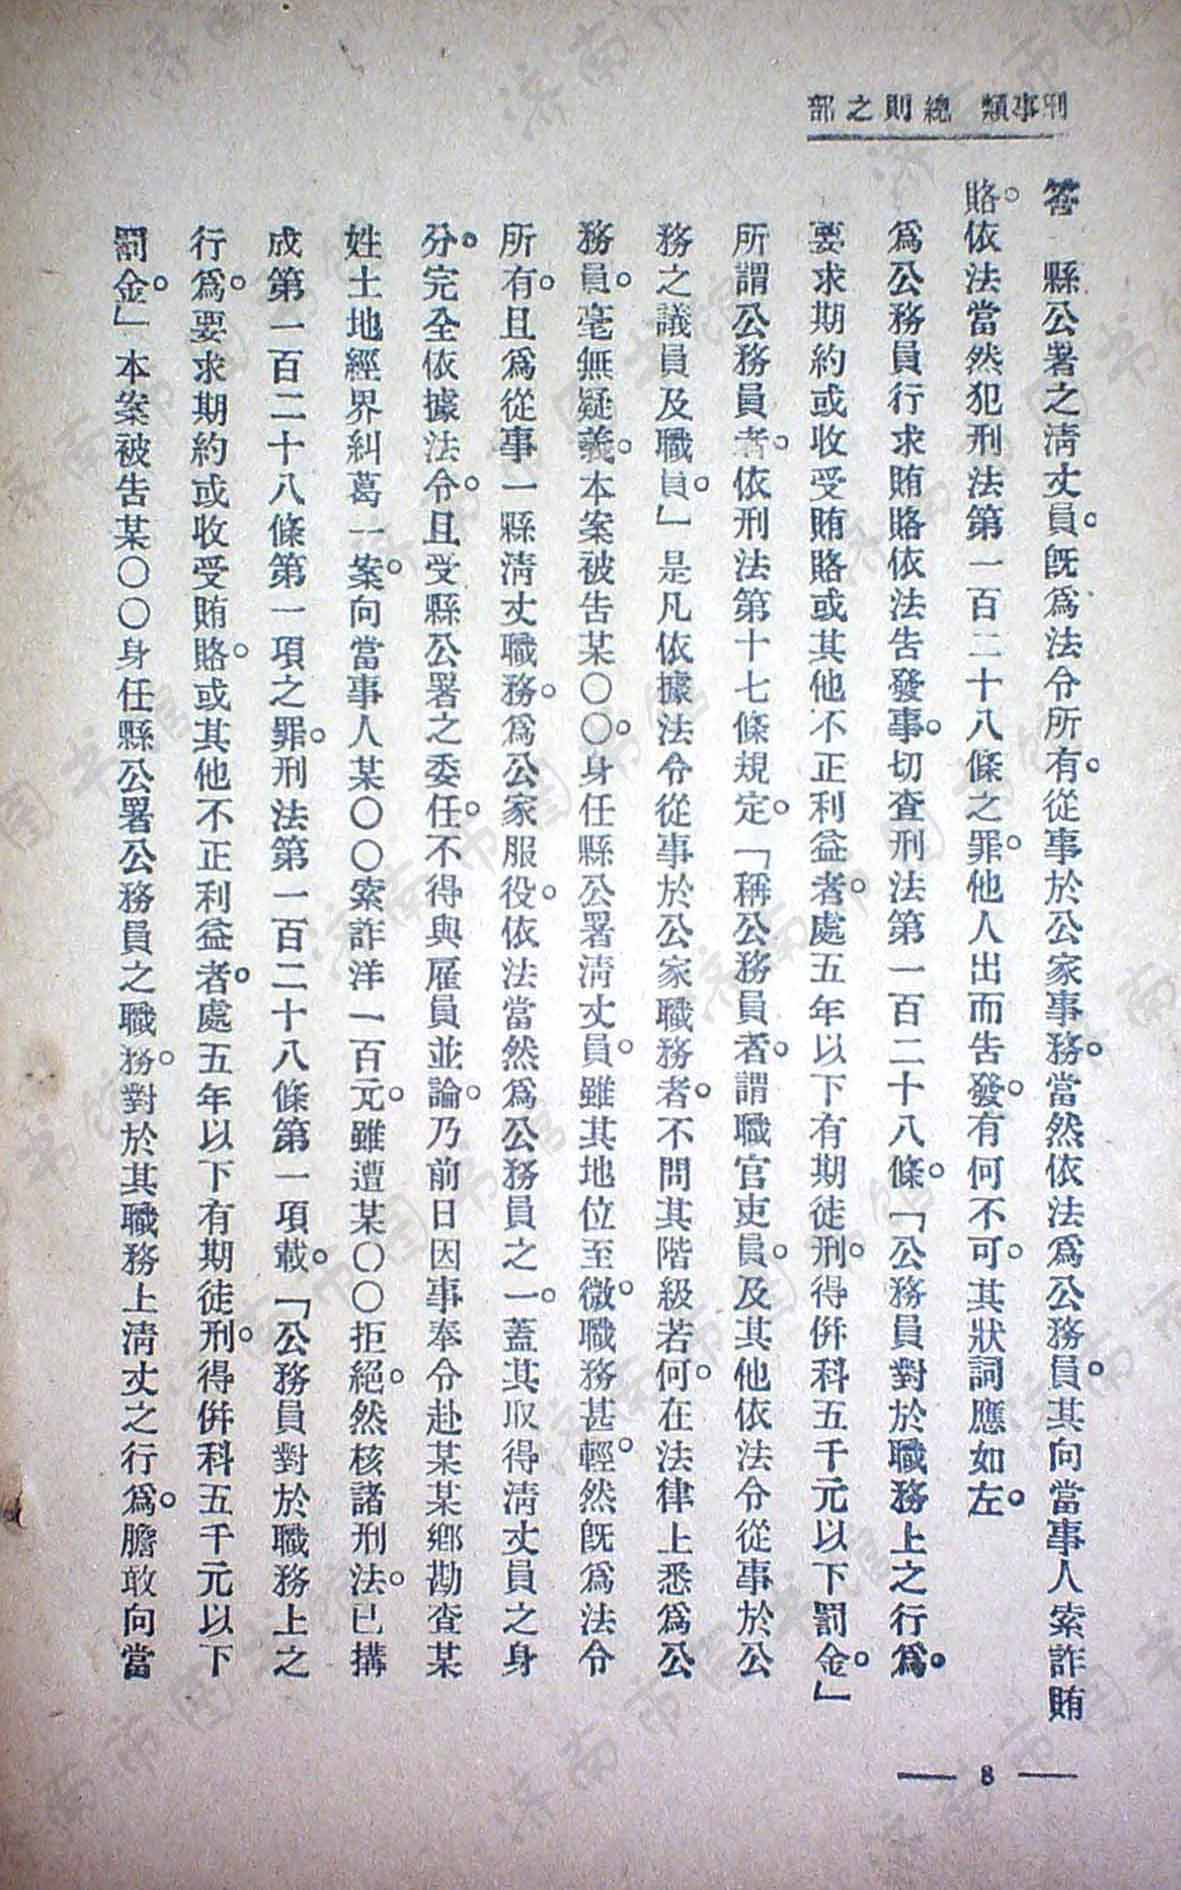 刑事類　總則之部
答　縣公署之淸丈員。旣爲法令所有。從事於公家事務。當然依法爲公務員。其向當事人索詐賄
賂。依法當然犯刑法第一百二十八條之罪。他人出而告發。有何不可。其狀詞應如左。
爲公務員行求賄賂依法告發事。切査刑法第一百二十八條。「公務員對於職務上之行爲。
要求期約或收受賄賂或其他不正利益者。處五年以下有期徒刑。得倂科五千元以下罰金。」
所謂公務員者。依刑法第十七條規定。「稱公務員者。謂職官吏員。及其他依法令從事於公
務之議員及職員。」是凡依據法令從事於公家職務者。不問其階級若何。在法律上悉爲公
務員。毫無疑義。本案被告某〇〇。身任縣公署淸丈員。雖其地位至微。職務甚輕。然旣爲法令
所有。且爲從事一縣淸丈職務。爲公家服役。依法當然爲公務員之一。蓋其取得淸丈員之身
分。完全依據法令。且受縣公署之委任。不得與雇員並論。乃前日因事奉令赴某某鄕勘査某
姓土地經界糾葛一案。向當事人某〇〇索詐洋一百元。雖遭某〇〇拒絕。然核諸刑法。已搆
成第一百二十八條第一項之罪。刑法第一百二十八條第一項載。「公務員對於職務上之
行爲。要求期約或收受賄賂。或其他不正利益者。處五年以下有期徒刑。得倂科五千元以下
罰金。」本案被告某〇〇身任縣公署公務員之職務。對於其職務上淸丈之行爲。膽敢向當
— 8 —
济南市图书馆